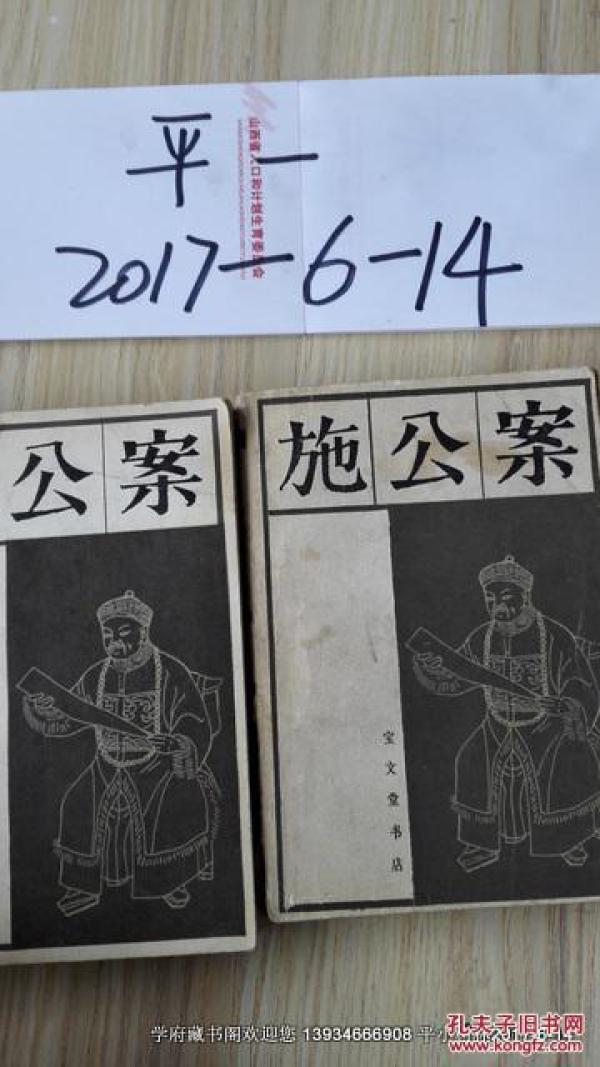 平一
山西省人口和计划生育委员会
2017-6-14
公案
施公案
宝文堂书店
学府藏书阁欢迎您 13934666908 平小
孔夫子旧书网
kongfz.com